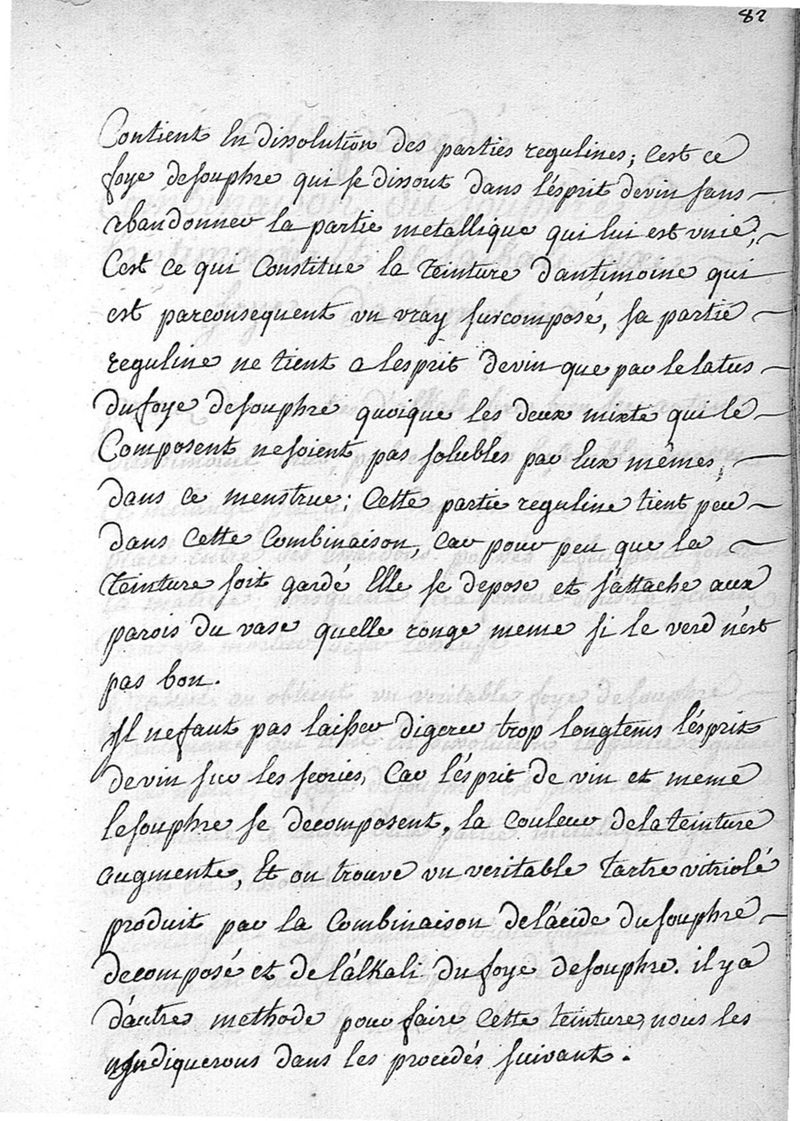 82
Contient en dissolution des parties regulines; c'est ce
foye de souphre qui se dissout dans l'ésprit de vin sans
abandonner la partie metallique qui lui est unie,
C'est ce qui Constitue la teinture d'antimoine qui
est parconsequent un vray surcomposé, sa partie
reguline ne tient a l'esprit de vin que par le latus
du foye de souphre quoique les deux mixte qui le
Composent ne soient pas solubles par eux mêmes,
dans ce menstrue: Cette partie reguline tient peu
dans cette Combinaison, Car pour peu que la
teinture soit gardé Elle se depose et s'áttache aux
parois du vase quelle ronge meme si le verd n'ést
pas bon.
Il ne faut pas laisser digerer trop longtems l'ésprit
de vin sur les scories, Car l'ésprit de vin et meme
le souphre se decomposent, la couleur de la teinture
augmente, Et on trouve un veritable Tartre vitriolé
produit par la Combinaison de l'ácide du souphre
decomposé et de l'álkali du foye de souphre. il y a
d'áutres methode pour faire Cette teinture, nous les
indiquerons dans les procedés suivant.